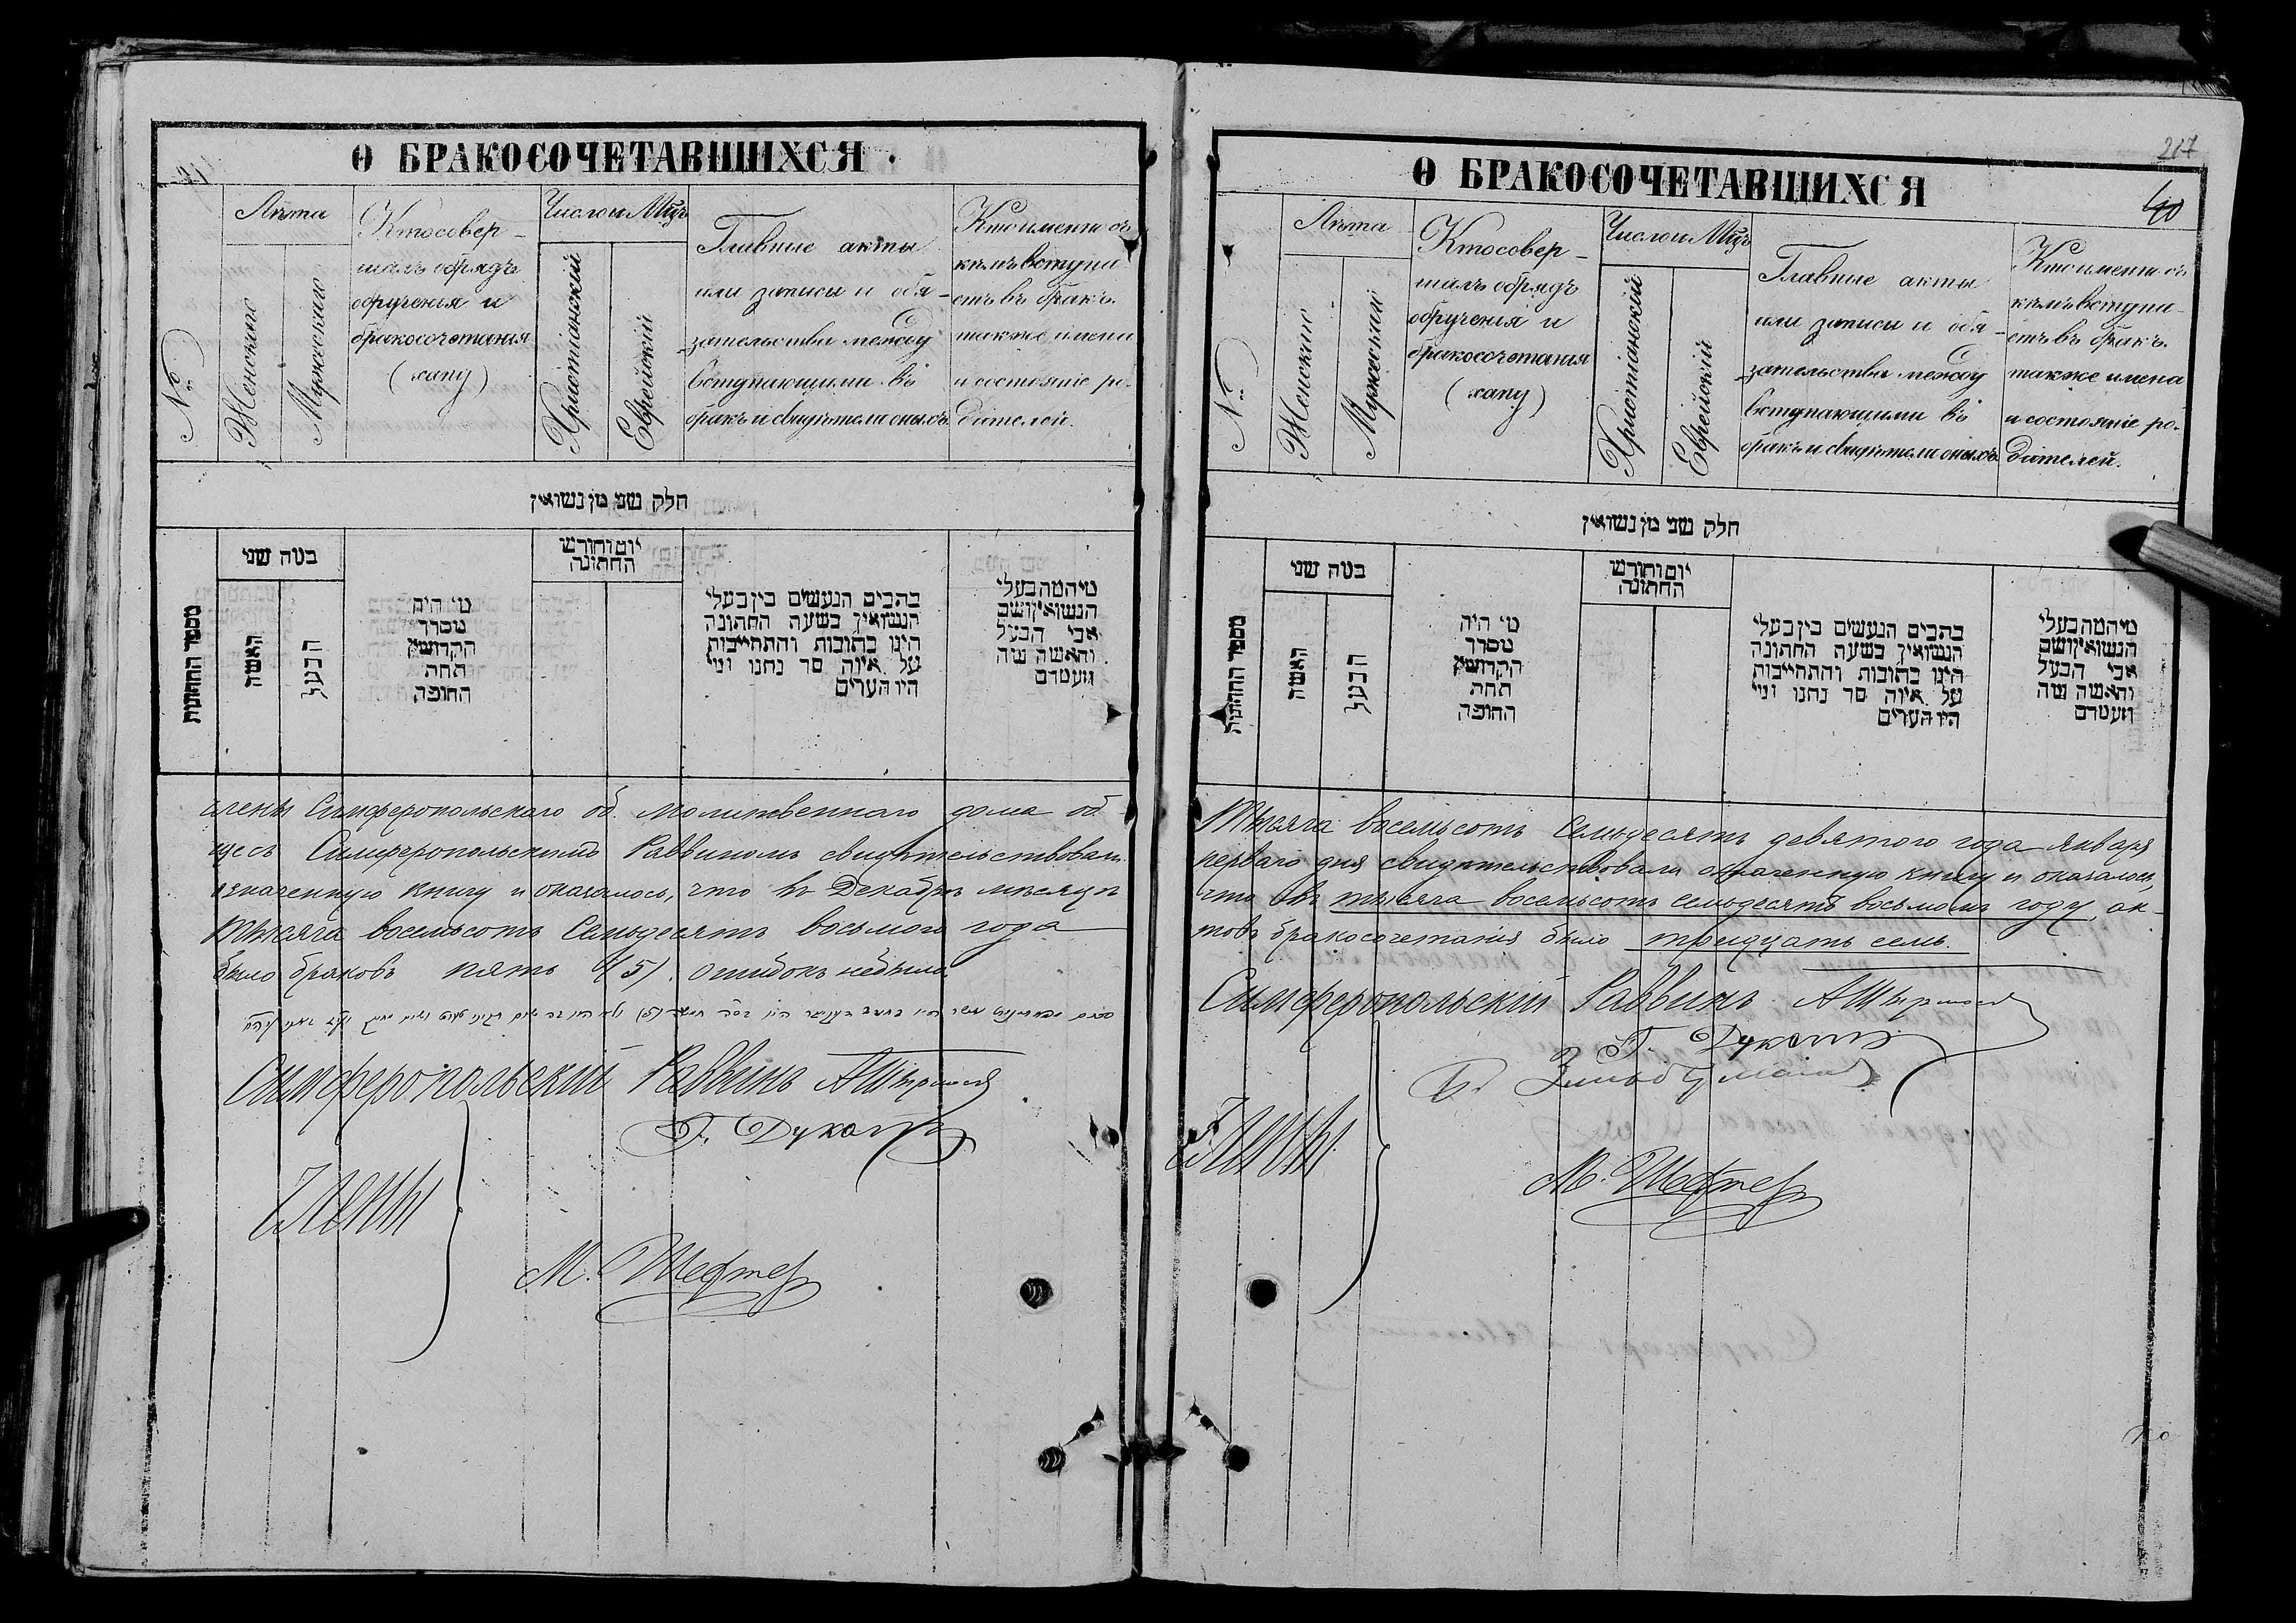 О БРАКОСОЧЕТАВШИХСЯ.
Лѣта
Число и Мѣцъ
№
Женскаго
Мужескаго
Кто совер-
шалъ обрядъ
обрученія и
бракосочетанія
(хапу)
Христіанскій
Еврейскій
Главные акты
или записи и обя-
зательства между
вступающими въ
бракъ и свидѣтели оныхъ
Кто именно съ
кѣмъ вступи-
етъ въ бракъ.
также имена
и состояніе ро-
дителей.
חלק שני מן נשואין
מספר החתונות
כמה שני
האשה
הבעל
מי היה
מסדר
הקדושין
תחת
החופה
יום וחורש
החתונה
כתבים הנעשים בין בעלי
הנשואין בשעה החתונה
היינו כתובות והתחייבות
על איזה סך נתנו ומי
היו העדים
מי המה בעלי
הנשואין ושם
אבי הבעל
והאשה ומה
מעמדם
члены Симферопольскаго об. Молитвеннаго дома об-
щесъ Симферопольскимъ Раввиномъ свидѣтельствовали
означенную книгу и оказалось, что въ Декабрѣ мѣсяцѣ
тысяча восемьсотъ семьдесятъ восьмого года
было браковъ пять (5). ошибокъ небыло.
Симферопольскій Раввинъ
Г.
Члены
М. Шефтер
О БРАКОСОЧЕТАВШИХСЯ
217
40
Лѣта
Число и Мѣцъ
№
Женскаго
Мужескаго
Кто совер-
шалъ обрядъ
обрученія и
бракосочетанія
(хапу)
Христіанскій
Еврейскій
Главные акты
или записи и обя-
зательства между
вступающими въ
бракъ и свидѣтели оныхъ
Кто именно съ
кѣмъ вступи-
етъ въ бракъ.
также имена
и состояніе ро-
дителей.
חלק שני מן נשואין
מספר החתונות
כמה שני
האשה
הבעל
מי היה
מסדר
הקדושין
תחת
החופה
יום וחורש
החתונה
כתבים הנעשים בין בעלי
הנשואין בשעה החתונה
היינו כתובות והתחייבות
על איזה סך נתנו ומי
היו העדים
מי המה בעלי
הנשואין ושם
אבי הבעל
והאשה ומה
מעמדם
Тысяча восемьсотъ семьдесятъ девятого года января
перваго дня свидѣтельствовали означенную книгу и оказалось,
что въ тысяча восемьсотъ семьдесятъ восьмомъ году ак-
товъ бракосочетанія было тридцать семь.
Симферопольскій Раввинъ
Г.
Члены
М. Шефтер